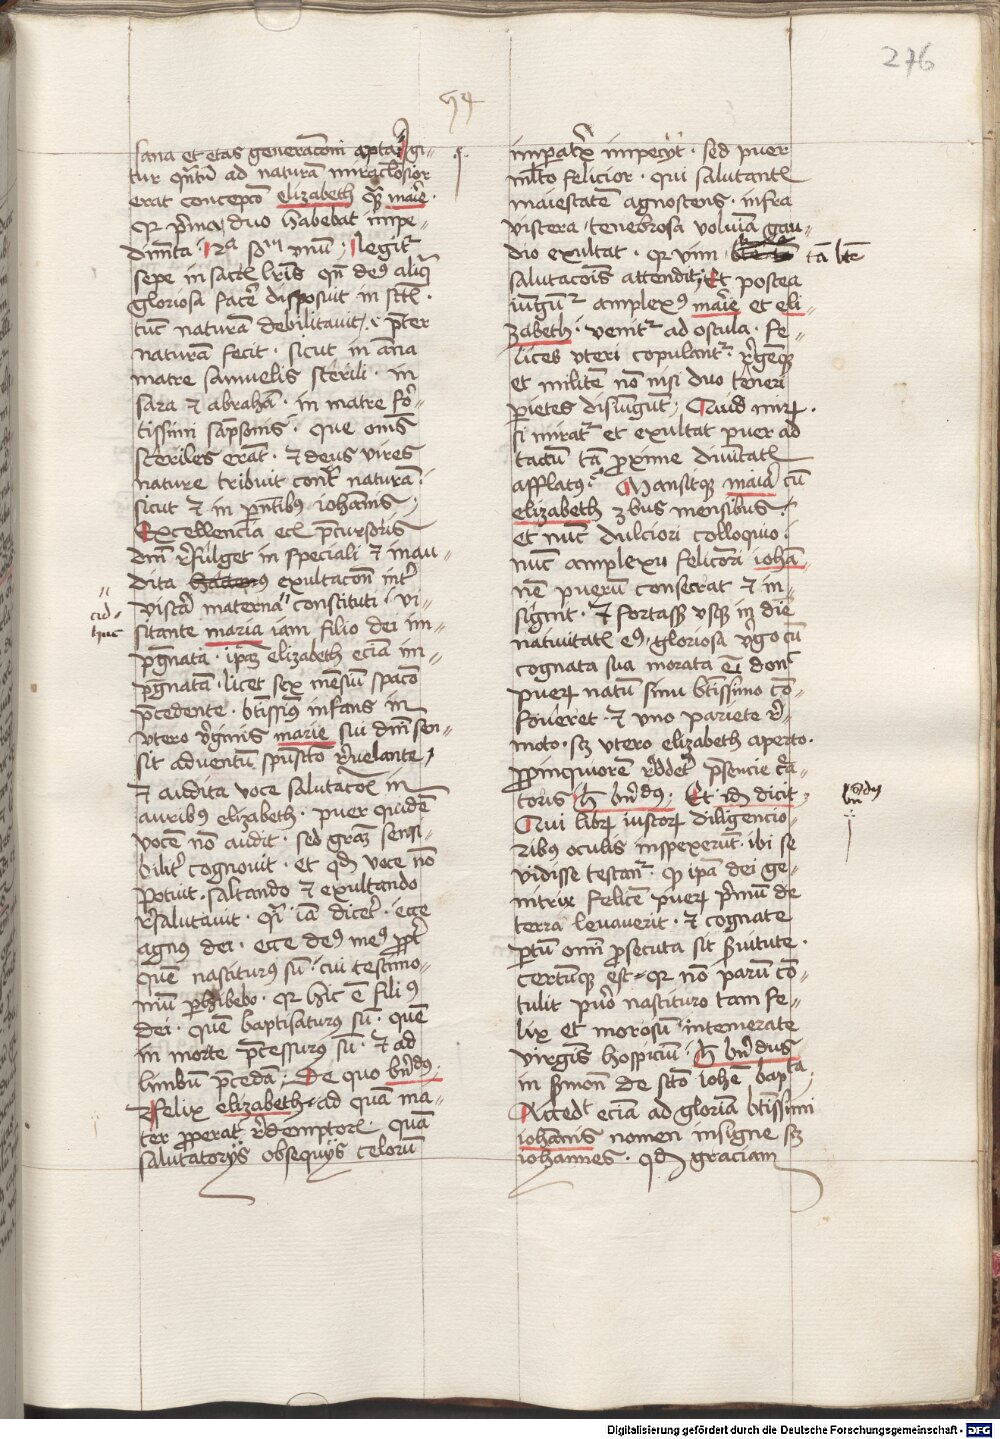 276
sana et etas generaconi apta Igi-
tur qntu ad natura miraclosior
erat concepcio elizabeth qz marie.
qz prima duo habebat impe-
dimta. 2a solu unu. legitr
sepe in sacris libris qn deus aliqd
gloriosa facere disposuit in sctis.
tuc natura debilitavit, et preter
natura fecit. sicut in anna
matre samuelis sterili. in
sara et abraha. in matre for-
tissimi sampsonis. que omes
steriles erat. et deus vires
nature tribuit contra natura.
sicut et in parentibus iohannis,
Excellencia ecia precursoris
dni refulget in speciali et inau-
dita exultacone inter
viscera materna constituti. vi-
cid-
huc
sitante maria iam filio dei im-
pregnata. ipam elizabeth ecia im-
pregnata. licet sex mensiu spacio
precedente. btissimus infans in
utero virginis marie sui dni sen-
sit adventum spusancto revelante,
et audita voce salutacois in
auribus elizabeth. puer quide
voce no audit. sed gram sensi-
biliter cognovit. et qd voce no
potuit. saltando et exultando
resalutavit. quasi iam diceret. ecce
agnus dei. ecce deus meus propter
que nasciturus sum. cui testimo-
nium perhibebo. qz hic est filius
dei. que baptisaturus sum. que
in morte precessurus sum. et ad
limbum precedam. De quo bernhardus.
felix elizabeth. ad quam ma-
ter properat redemptoris. quam
salutatoriis obsequiis celorum
imperatrix impeciit. sed puer
multo felicior. qui salutantis
maiestatem agnoscens. infra
viscera tenebrosa voluta gau-
dio exultat. qz vim tam bte
salutacois attendit. Et postea
iunguntur amplexus marie et eli-
zabeth. venitur ad oscula. fe-
lices uteri copulantur. regemque
et militem non nisi duo teneri
parietes disiungunt, Quid mirum
si miratur et exultat puer ad
tactum tam proxime divinitatis
afflatus. Mansitque maria cum
elizabeth 3bus mensibus.
et nunc dulciori colloquio.
nunc amplexu feliciori iohan-
nem puerum consecrat et in-
signit. et fortasse usque in die
nativitatis eius. gloriosa virgo cum
cognata sua morata est donec
puerum natum sinu btissimo con-
foveret. et uno pariete re-
moto. scz utero elizabeth aperto.
propinquiorem redderet presencie crea-
toris. hec bernhardus. Et idem dicit,
Qui librum iustorum diligencio-
ribus oculis inspexerunt. ibi se
vidisse testantur. quod ipsa dei ge-
nitrix felicem puerum primum de
terra levaverit. et cognate
partum omni prosecuta sit servitute.
certumque est qz non parum con-
tulit puero nascituro tam fe-
lix et morosum intemerate
virginis hospicium. hec bernhardus
in sermone de sancto iohanne baptista.
Accedit eciam ad gloriam btissimi
iohannis nomen insigne scz
iohannes. quod graciam
Digitalisierung gefördert durch die Deutsche Forschungsgemeinschaft - DFG